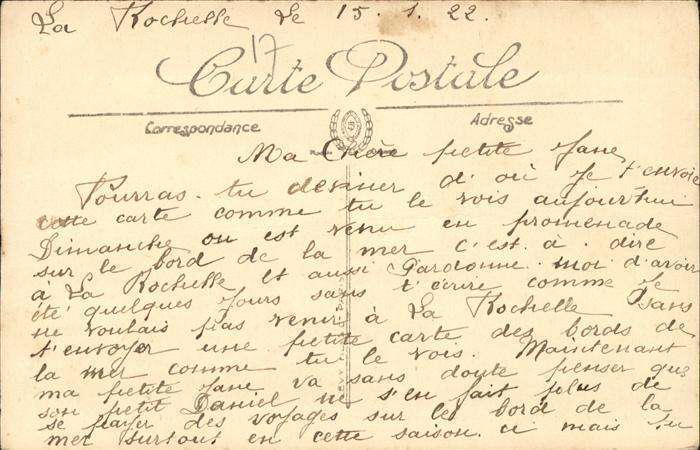 La Rochelle Le 15. 1. 22.
17
Carte Postale
Correspondance
Adresse
Ma Chère petite Jane
Pourras-tu deviner d'où je t'envoie
cette carte comme tu le vois aujourd'hui
Dimanche on est venu en promenade
sur le bord de la mer c'est à dire
à La Rochelle Et aussi Pardonne moi d'avoir
été quelques jours sans t'écrire comme je
ne voulais pas venir à La Rochelle sans
t'envoyer une petite carte des bords de
la mer comme tu le vois. Maintenant
ma petite Jane va sans doute penser que
son petit Daniel ne s'en fait plus de
se payer des voyages sur les bord de la
mer surtout en cette saison. ci mais tu